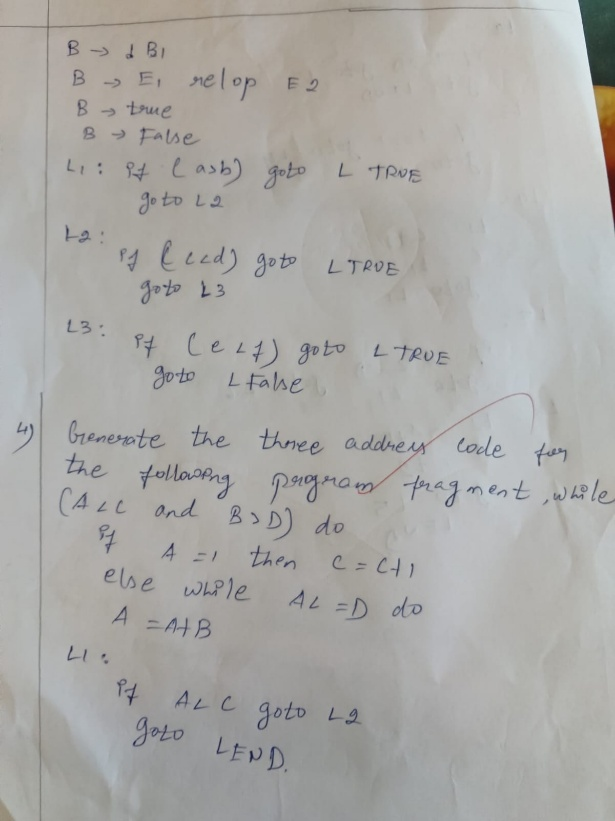 B → ! B1
B → E1 relop E2
B → true
B → False
L1: if (a>b) goto L TRUE
goto L2
L2:
if (c<d) goto L TRUE
goto L3
L3:
if (e<f) goto L TRUE
goto L False
4) Generate the three address code for
the following program fragment, while
(A<C and B>D) do
if A=1 then C=C+1
else while A<=D do
A=A+B
L1:
if A<C goto L2
goto LEND.